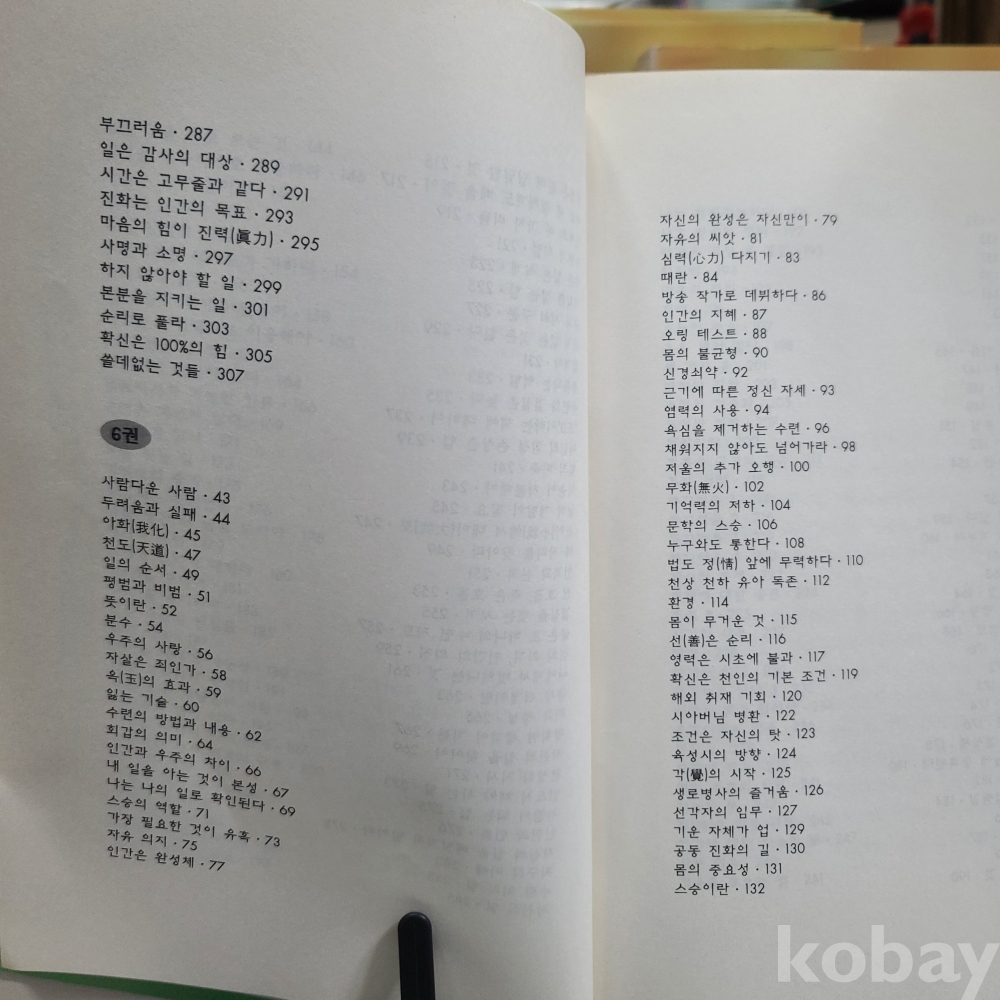 부끄러움 · 287
일은 감사의 대상 · 289
시간은 고무줄과 같다 · 291
진화는 인간의 목표 · 293
마음의 힘이 진력(眞力) · 295
사명과 소명 · 297
하지 않아야 할 일 · 299
본분을 지키는 일 · 301
순리로 풀라 · 303
확신은 100%의 힘 · 305
쓸데없는 것들 · 307
6권
사람다운 사람 · 43
두려움과 실패 · 44
아화(我化) · 45
천도(天道) · 47
일의 순서 · 49
평범과 비범 · 51
뜻이란 · 52
분수 · 54
우주의 사랑 · 56
자살은 죄인가 · 58
옥(玉)의 효과 · 59
잃는 기술 · 60
수련의 방법과 내용 · 62
회갑의 의미 · 64
인간과 우주의 차이 · 66
내 일을 아는 것이 본성 · 67
나는 나의 일로 확인된다 · 69
스승의 역할 · 71
가장 필요한 것이 유혹 · 73
자유 의지 · 75
인간은 완성체 · 77
자신의 완성은 자신만이 · 79
자유의 씨앗 · 81
심력(心力) 다지기 · 83
때란 · 84
방송 작가로 데뷔하다 · 86
인간의 지혜 · 87
오링 테스트 · 88
몸의 불균형 · 90
신경쇠약 · 92
근기에 따른 정신 자세 · 93
염력의 사용 · 94
욕심을 제거하는 수련 · 96
채워지지 않아도 넘어가라 · 98
저울의 추가 오행 · 100
무화(無火) · 102
기억력의 저하 · 104
문학의 스승 · 106
누구와도 통한다 · 108
법도 정(情) 앞에 무력하다 · 110
천상 천하 유아 독존 · 112
환경 · 114
몸이 무거운 것 · 115
선(善)은 순리 · 116
영력은 시초에 불과 · 117
확신은 천인의 기본 조건 · 119
해외 취재 기회 · 120
시아버님 병환 · 122
조건은 자신의 탓 · 123
육성시의 방향 · 124
각(覺)의 시작 · 125
생로병사의 즐거움 · 126
선각자의 임무 · 127
기운 자체가 업 · 129
공동 진화의 길 · 130
몸의 중요성 · 131
스승이란 · 132
kobay